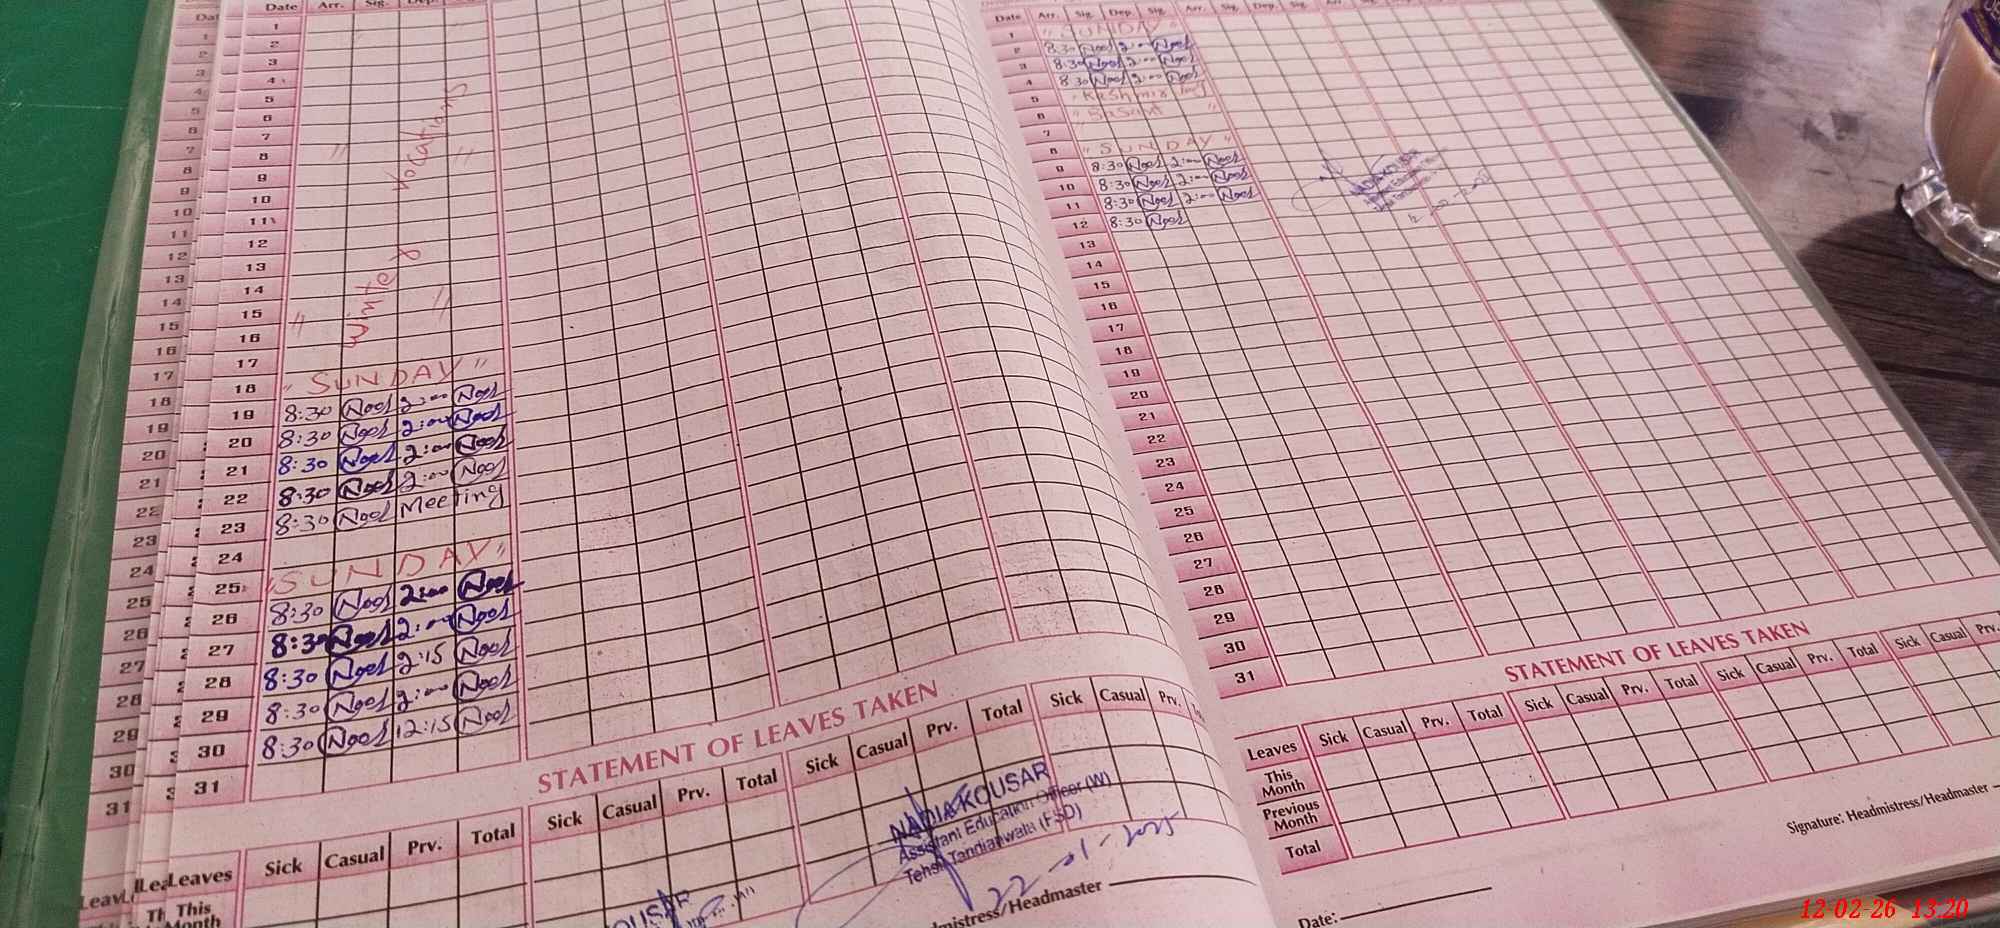 Date Arr. Sig. Dep.
1
2
3
4
5
6
7
8
9
10
11
12
13
14
15
16
17
Winter Vocations
18 "SUNDAY"
19 8:30 Noor 2:00 Noor
20 8:30 Noor 2:00 Noor
21 8:30 Noor 2:00 Noor
22 8:30 Noor 2:00 Noor
23 8:30 Noor Meeting
24
25 "SUNDAY"
26 8:30 Noor 2:00 Noor
27 8:30 Noor 2:00 Noor
28 8:30 Noor 2:15 Noor
29 8:30 Noor 2:00 Noor
30 8:30 Noor 12:15 Noor
31
STATEMENT OF LEAVES TAKEN
Leaves Sick Casual Prv. Total Sick Casual Prv. Total Sick Casual Prv. Total Sick Casual Prv.
This
Month
NADIA KOUSAR
Assistant Education Officer (W)
Tehsil Tandlianwala (FSD)
22-01-2025
OUSAR
dmistress/Headmaster
Date Arr. Sig. Dep. Sig. Arr. Sig. Dep. Sig.
1 "SUNDAY"
2 8:30 Noor 2:00 Noor
3 8:30 Noor 2:00 Noor
4 8:30 Noor 2:00 Noor
5 "Kashmir
6 "Basant"
7
8 "SUNDAY"
9 8:30 Noor 2:00 Noor
10 8:30 Noor 2:00 Noor
11 8:30 Noor 2:00 Noor
12 8:30 Noor
13
14
15
16
17
18
19
20
21
22
23
24
25
26
27
28
29
30
31
STATEMENT OF LEAVES TAKEN
Leaves Sick Casual Prv. Total Sick Casual Prv. Total Sick Casual Prv. Total Sick Casual Prv.
This
Month
Previous
Month
Total
Signature: Headmistress/Headmaster
Date:
12-02-26 13:20